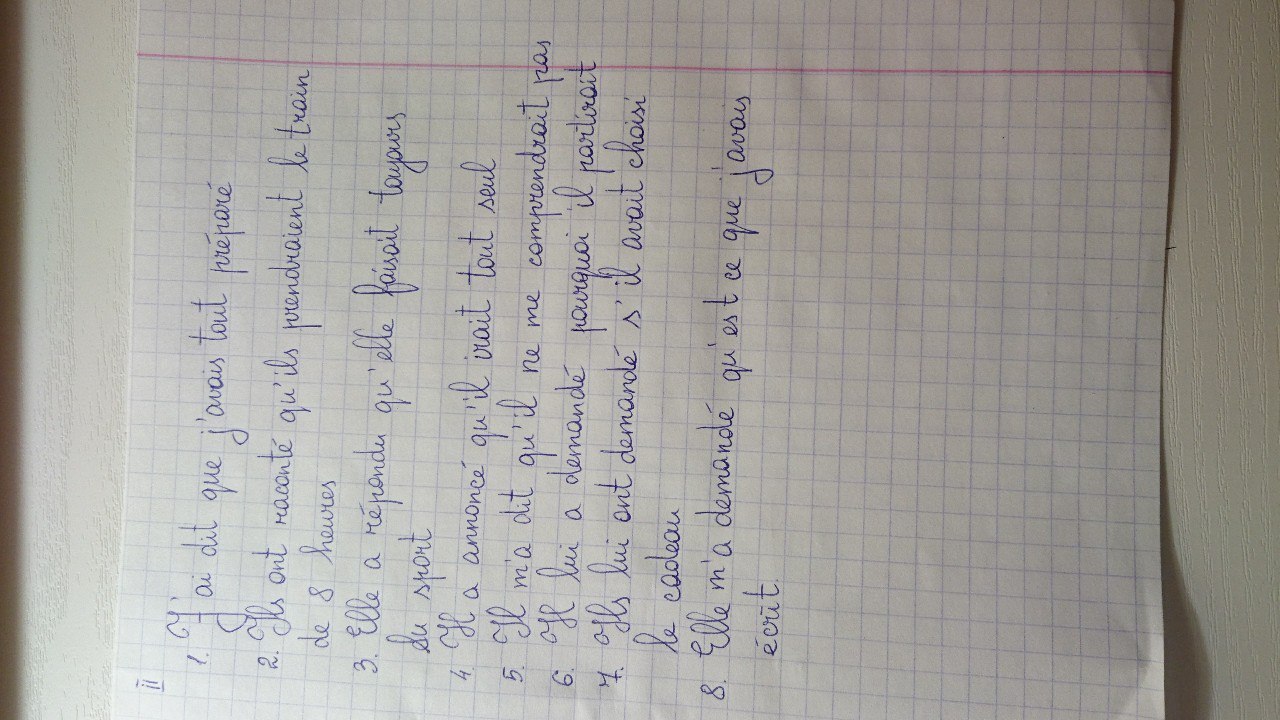 II
1. J'ai dit que j'avais tout préparé
2. Ils ont raconté qu'ils prendraient le train
de 8 heures
3. Elle a répondu qu'elle faisait toujours
du sport
4 Il a annoncé qu'il irait tout seul
5. Il m'a dit qu'il ne me comprendrait pas
6. Il lui a demandé pourquoi il partirait
7. Ils lui ont demandé s'il avait choisi
le cadeau
8. Elle m'a demandé qu'est ce que j'avais
écrit.